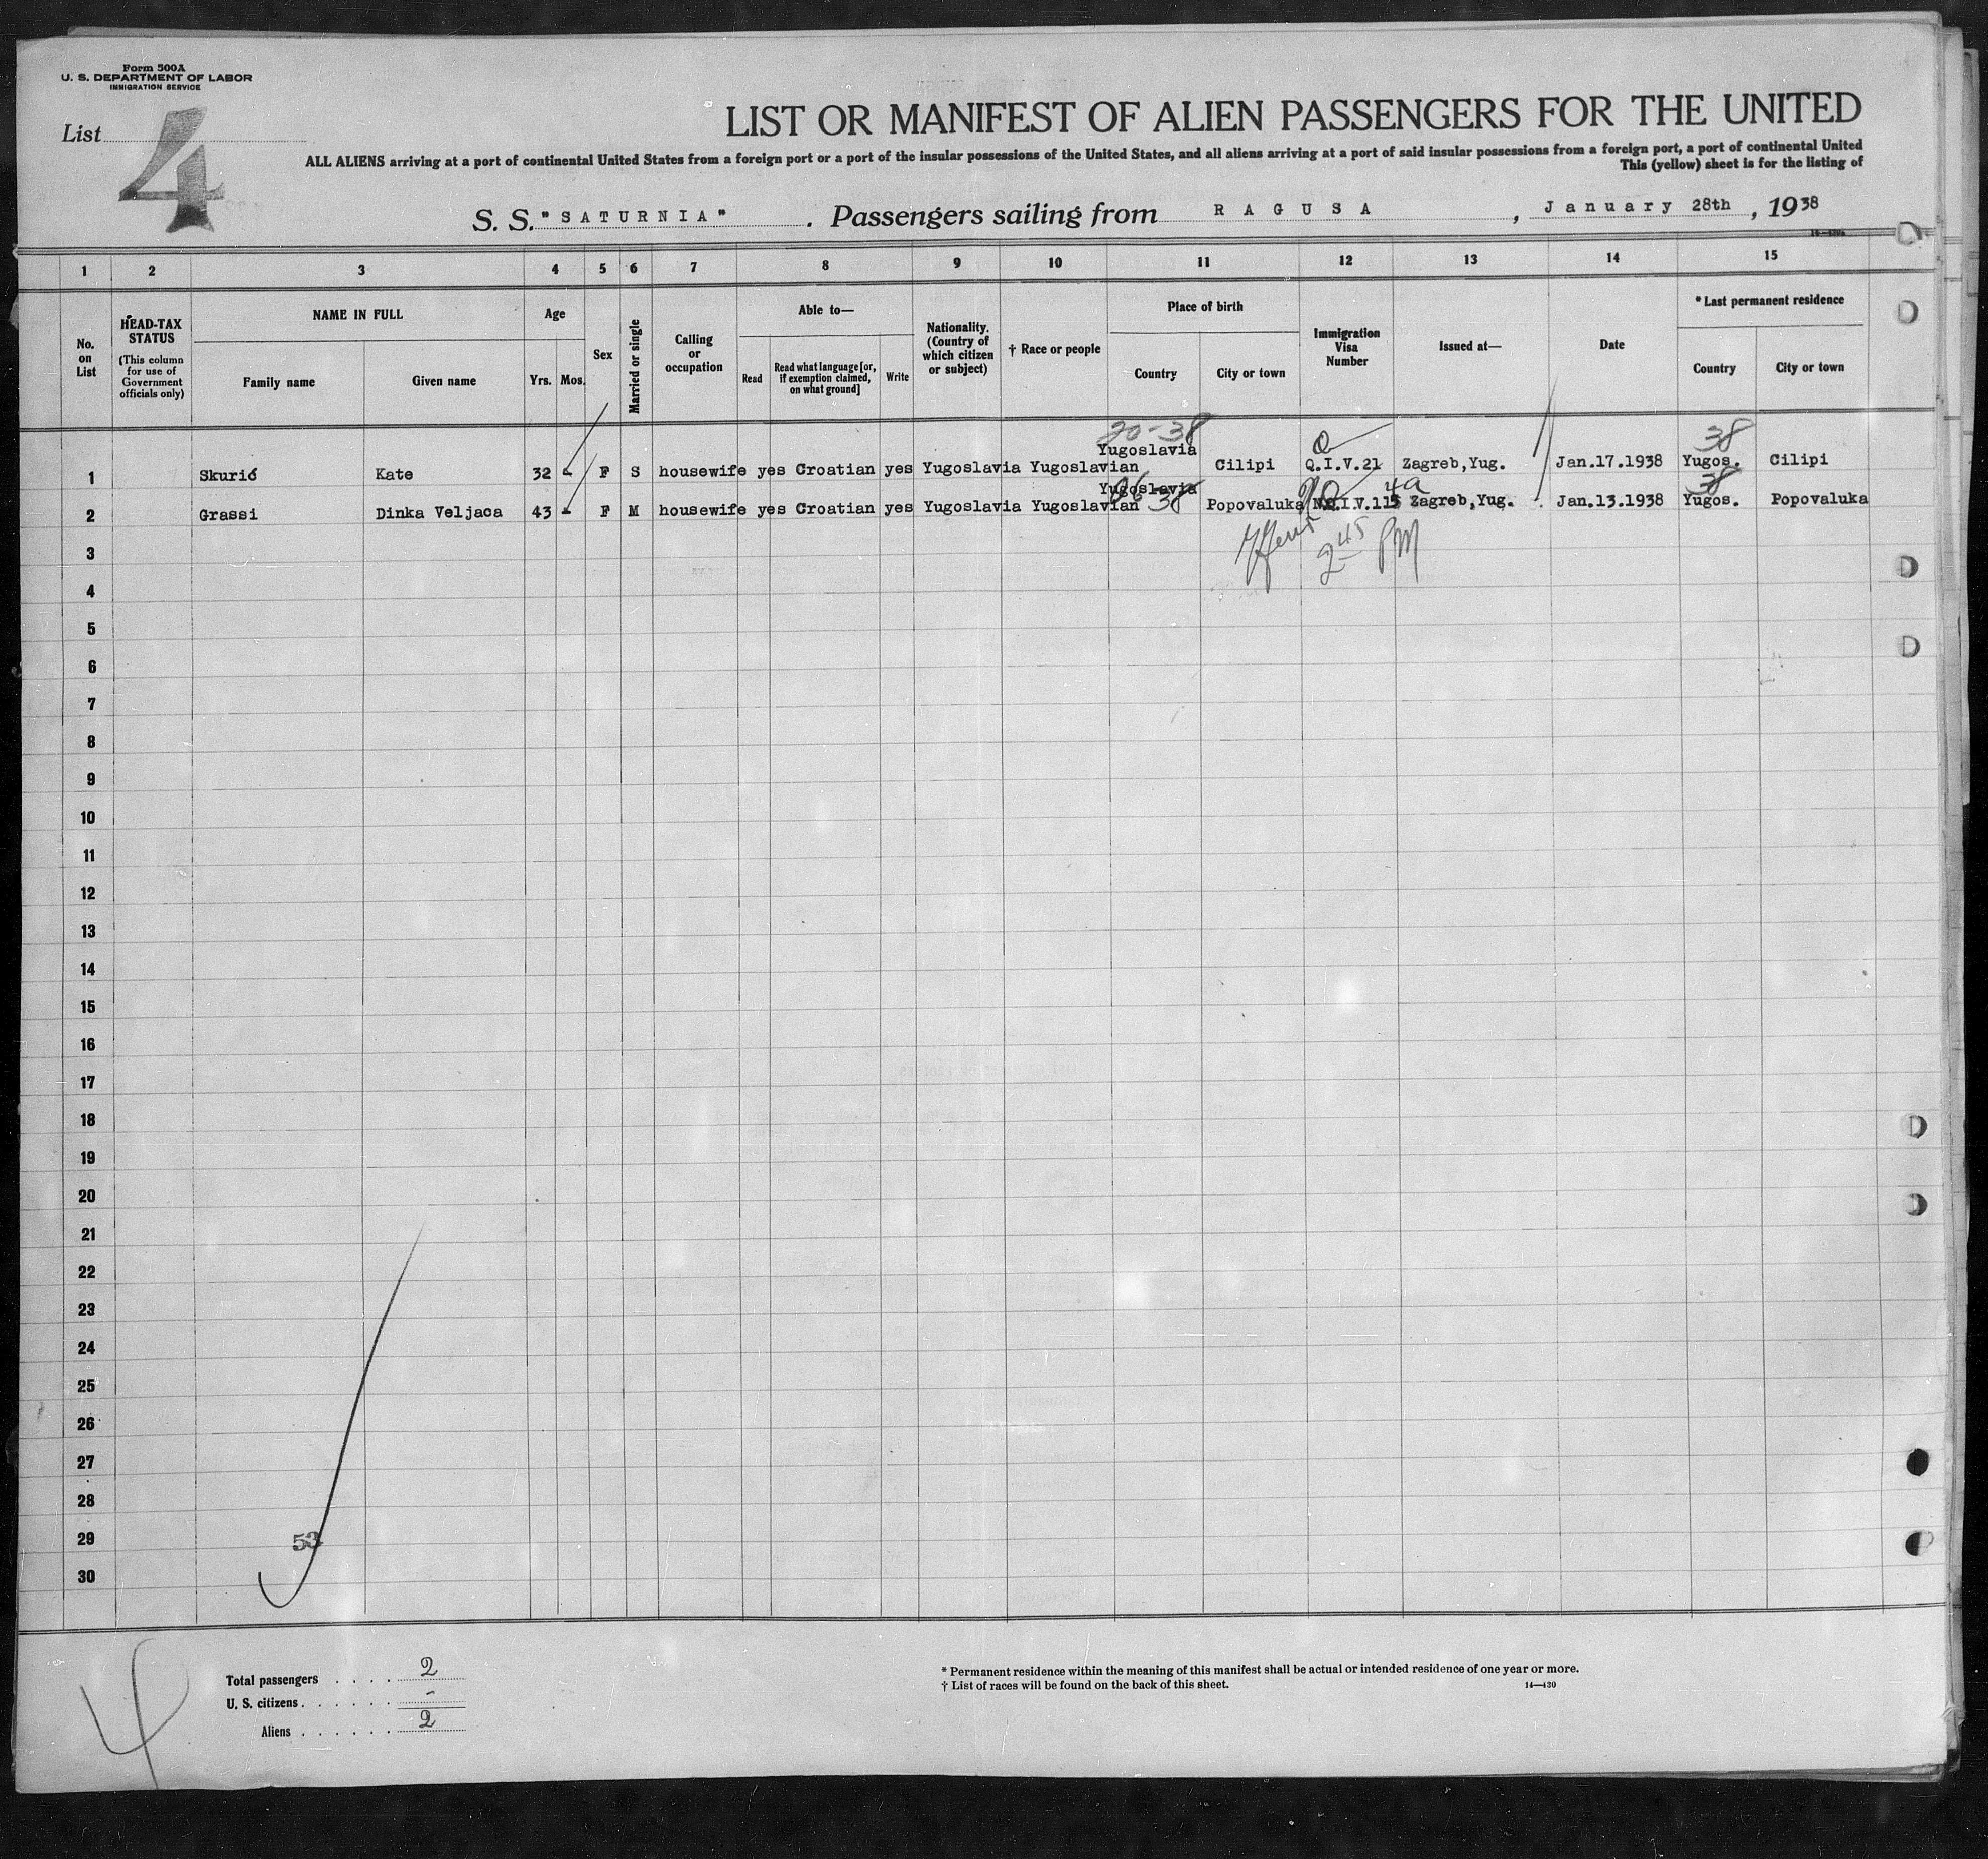 Form 500A
U. S. DEPARTMENT OF LABOR
IMMIGRATION SERVICE
List 4
LIST OR MANIFEST OF ALIEN PASSENGERS FOR THE UNITED
ALL ALIENS arriving at a port of continental United States from a foreign port or a port of the insular possessions of the United States, and all aliens arriving at a port of said insular possessions from a foreign port, a port of continental United
This (yellow) sheet is for the listing of
S. S. "SATURNIA". Passengers sailing from RAGUSA, January 28th, 1938
1 2 3 4 5 6 7 8 9 10 11 12 13 14 15
No. on List
HEAD-TAX STATUS (This column for use of Government officials only)
NAME IN FULL
Family name Given name
Age
Yrs. Mos.
Sex
Married or single
Calling or occupation
Able to—
Read Read what language [or, if exemption claimed, on what ground] Write
Nationality. (Country of which citizen or subject)
† Race or people
Place of birth
Country City or town
Immigration Visa Number
Issued at—
Date
* Last permanent residence
Country City or town
20-38 Q 38
Yugoslavia
1 Skurić Kate 32 - F S housewife yes Croatian yes Yugoslavia Yugoslavian Cilipi Q.I.V.21 Zagreb,Yug. Jan.17.1938 Yugos. Cilipi
Yugoslavia 4a 38
2 Grassi Dinka Veljaca 43 - F M housewife yes Croatian yes Yugoslavia Yugoslavian 38 Popovaluka N.Q.I.V.115 Zagreb,Yug. Jan.13.1938 Yugos. Popovaluka
2 45 PM
3
4
5
6
7
8
9
10
11
12
13
14
15
16
17
18
19
20
21
22
23
24
25
26
27
28
29
53
30
4
Total passengers . . . . 2
U. S. citizens . . . . . . -
Aliens . . . . . . 2
* Permanent residence within the meaning of this manifest shall be actual or intended residence of one year or more.
† List of races will be found on the back of this sheet.
14—430